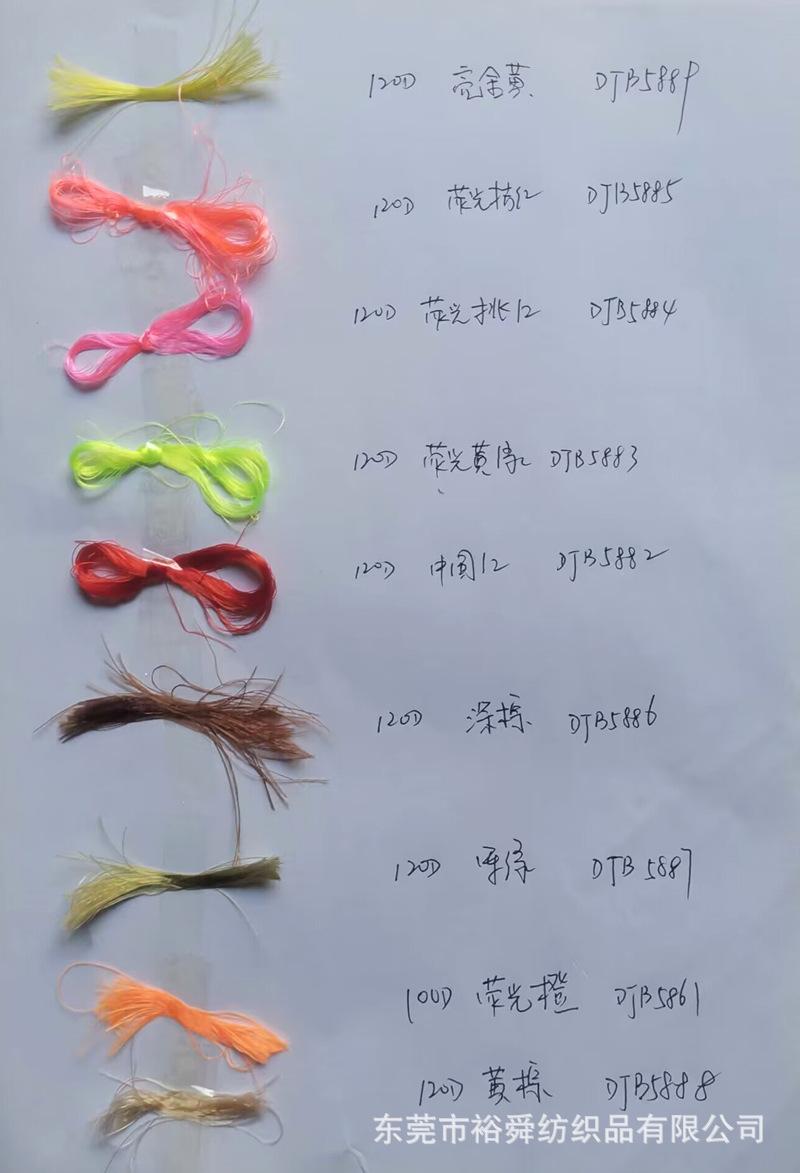 120D 亮金黄 DJB5889
120D 荧光桔红 DJB5885
120D 荧光桃红 DJB5884
120D 荧光黄绿 DJB5883
120D 中国红 DJB5882
120D 深棕 DJB5886
120D 军绿 DJB5887
100D 荧光橙 DJB5861
120D 黄棕 DJB5888
东莞市裕舜纺织品有限公司